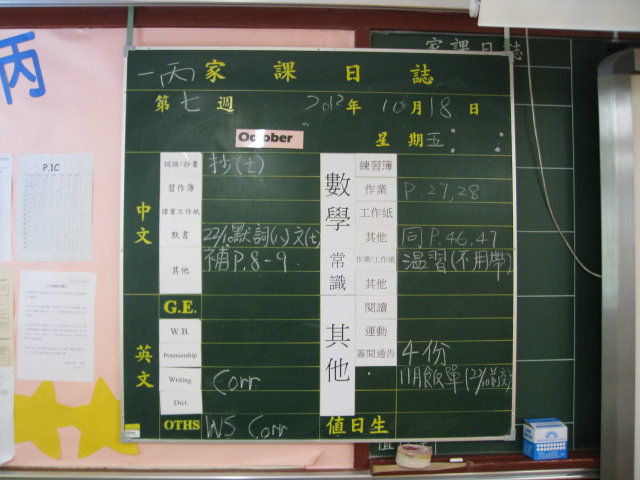 丙
家課日誌
一丙家課日誌
第七週 2013年10月18日
October
星期五
P.1C
中文
詞語/抄書 抄(七)
習作簿
課業工作紙
默書 22/10默詞(八)文(七)
其他 補P.8-9.
英文
G.E.
W.B.
Penmanship
Writing Corr
Dict.
OTHS WS Corr
數學
練習簿
作業 P.27,28
工作紙
其他 同P.46,47
常識
作業/工作紙 温習(不用帶)
其他
其他
閱讀
運動
簽閱通告 4份
11月飯單
值日生